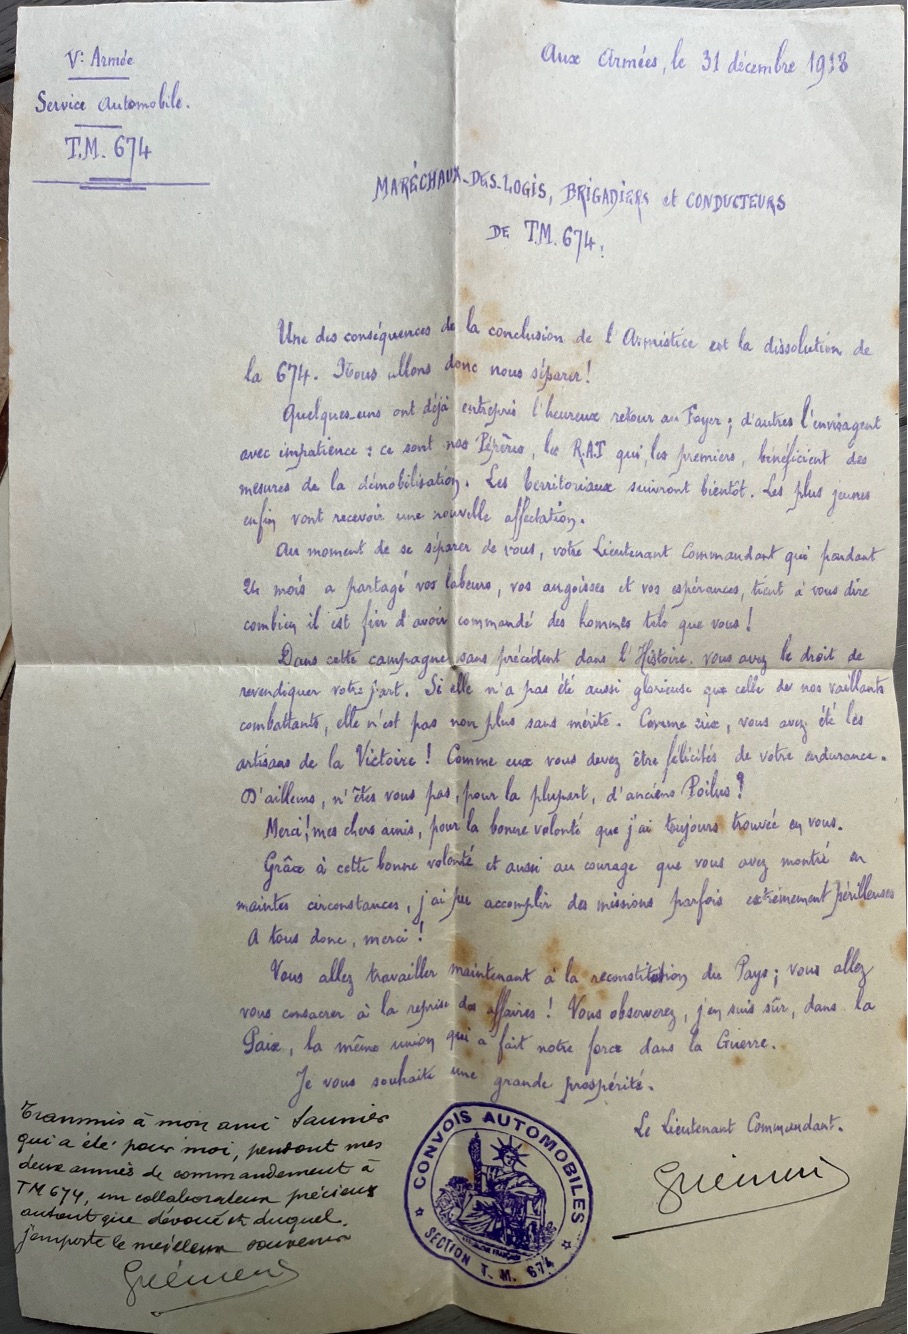 Vᵉ Armée
Service Automobile.
T.M. 674
Aux Armées, le 31 décembre 1918
MARÉCHAUX-DES-LOGIS, BRIGADIERS et CONDUCTEURS
DE T.M. 674.
Une des conséquences de la conclusion de l'Armistice est la dissolution de
la 674. Nous allons donc nous séparer !
Quelques-uns ont déjà entrepris l'heureux retour au Foyer ; d'autres l'envisagent
avec impatience : ce sont nos Pépères, les R.A.T qui, les premiers, bénéficient des
mesures de la démobilisation. Les territoriaux suivront bientôt. Les plus jeunes
enfin vont recevoir une nouvelle affectation.
Au moment de se séparer de vous, votre Lieutenant Commandant qui pendant
24 mois a partagé vos labeurs, vos angoisses et vos espérances, tient à vous dire
combien il est fier d'avoir commandé des hommes tels que vous !
Dans cette campagne sans précédent dans l'Histoire, vous avez le droit de
revendiquer votre part. Si elle n'a pas été aussi glorieuse que celle de nos vaillants
combattants, elle n'est pas non plus sans mérite. Comme eux, vous avez été les
artisans de la Victoire ! Comme eux vous devez être félicités de votre endurance.
D'ailleurs, n'êtes vous pas, pour la plupart, d'anciens Poilus ?
Merci ! mes chers amis, pour la bonne volonté que j'ai toujours trouvée en vous.
Grâce à cette bonne volonté et aussi au courage que vous avez montré en
maintes circonstances, j'ai pu accomplir des missions parfois extrêmement périlleuses
A tous donc, merci !
Vous allez travailler maintenant à la reconstitution du Pays ; vous allez
vous consacrer à la reprise des affaires ! Vous observerez, j'en suis sûr, dans la
Paix, la même union qui a fait notre force dans la Guerre.
Je vous souhaite une grande prospérité.
Le Lieutenant Commandant.
Transmis à mon ami Saunier
qui a été pour moi, pendant mes
deux années de commandement à
TM 674, un collaborateur précieux
autant que dévoué et duquel
j'emporte le meilleur souvenir
CONVOIS AUTOMOBILES
SECTION T. M. 674